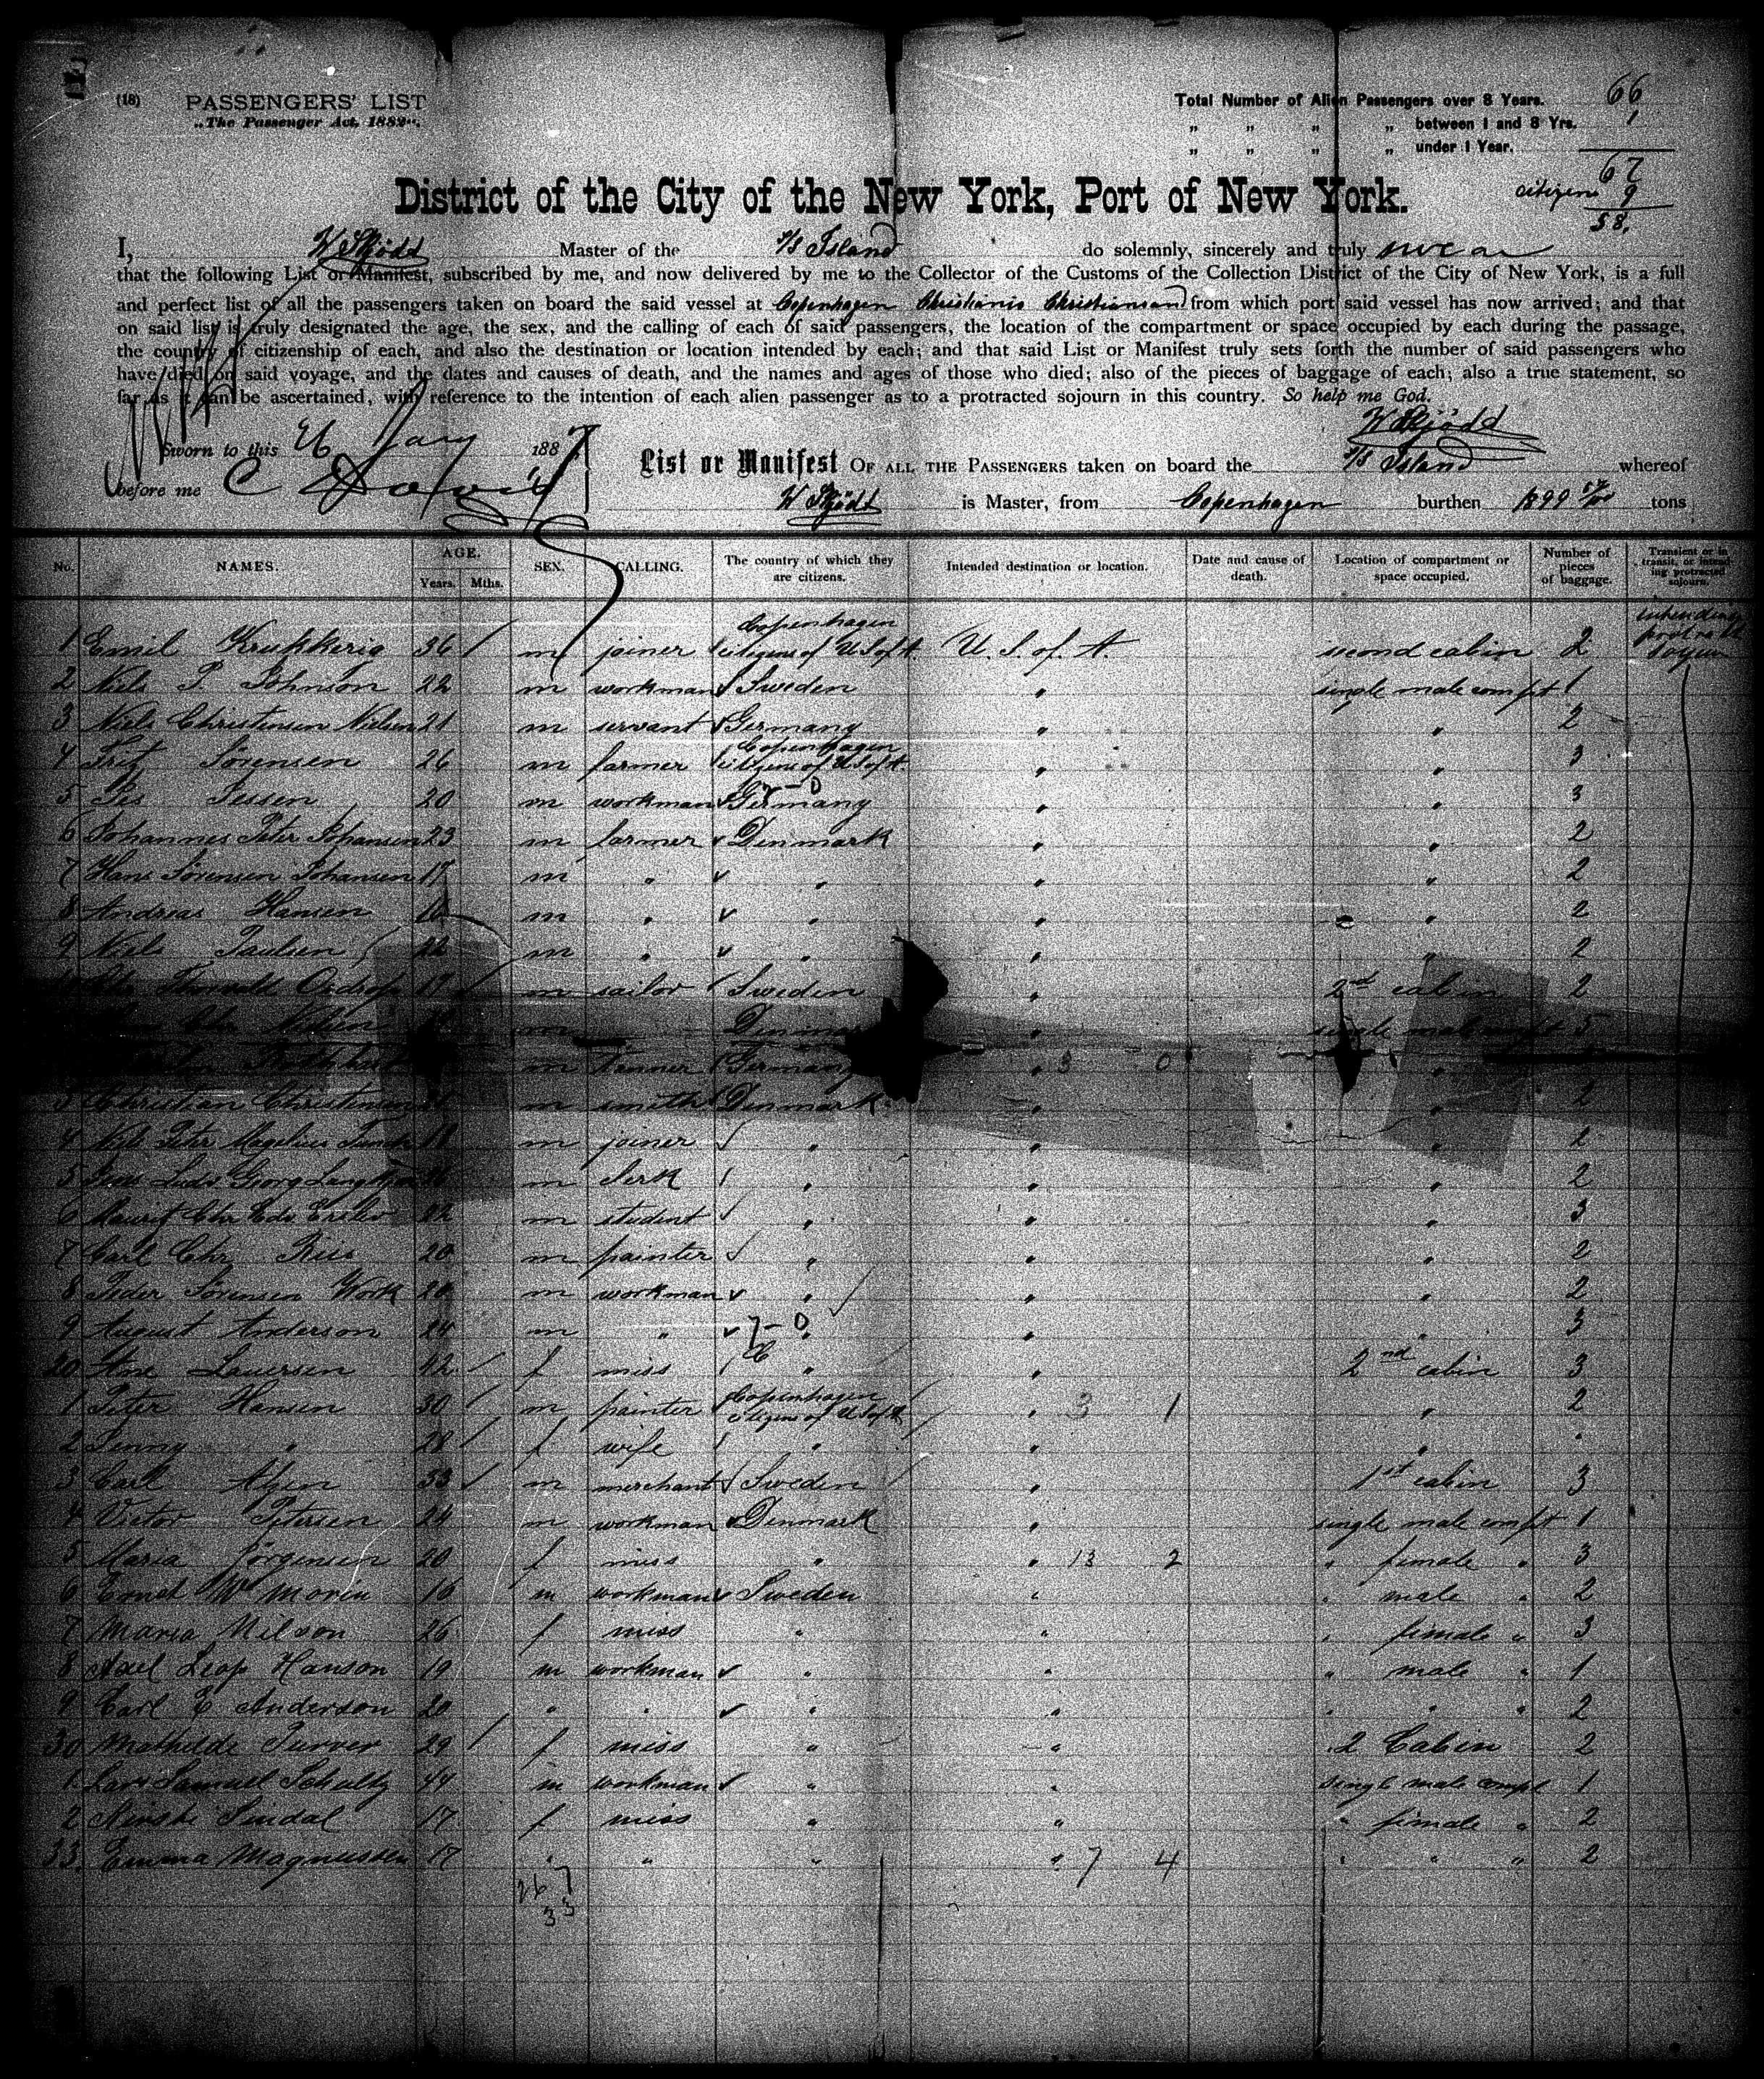 (18) PASSENGERS' LIST
„The Passenger Act, 1882".
Total Number of Alien Passengers over 8 Years. 66
„ „ „ „ between 1 and 8 Yrs. 1
„ „ „ „ under 1 Year.
67
citizens 9
58.
District of the City of the New York, Port of New York.
I, W Skjödt Master of the S/S Island do solemnly, sincerely and truly swear
that the following List or Manifest, subscribed by me, and now delivered by me to the Collector of the Customs of the Collection District of the City of New York, is a full
and perfect list of all the passengers taken on board the said vessel at Copenhagen Christiania Christiansand from which port said vessel has now arrived; and that
on said list is truly designated the age, the sex, and the calling of each of said passengers, the location of the compartment or space occupied by each during the passage,
the country of citizenship of each, and also the destination or location intended by each; and that said List or Manifest truly sets forth the number of said passengers who
have died on said voyage, and the dates and causes of death, and the names and ages of those who died; also of the pieces of baggage of each; also a true statement, so
far as it can be ascertained, with reference to the intention of each alien passenger as to a protracted sojourn in this country. So help me God.
W Skjödt
Sworn to this 26 Jany 1887
before me
List or Manifest OF ALL THE PASSENGERS taken on board the S/S Island whereof
W Skjödt is Master, from Copenhagen burthen 1899 tons
No. NAMES. AGE. Years. Mths. SEX. CALLING. The country of which they are citizens. Intended destination or location. Date and cause of death. Location of compartment or space occupied. Number of pieces of baggage. Transient or in transit, or intending protracted sojourn.
1 Emil 36 m joiner Copenhagen citizens of U.S of A. U. S. of. A. second cabin 2 intending
2 Niels P. Johnson 22 m workman Sweden " single male compt 1
3 Niels Christensen Nielsen 21 m servant Germany " " 2
4 Fritz Sörensen 26 m farmer Copenhagen citizens of U.S of A. " " 3
5 Jessen 20 m workman Germany " " 3
6 Johannes Peter Johansen 23 m farmer Denmark " " 2
7 Hans Sörensen Johansen 17 m " " " " 2
8 Andreas Hansen m " " " " 2
9 Niels Paulsen 22 m " " " " 2
m sailor Sweden " 2nd cabin 2
Chr Nielsen m Denmark " single male compt 5
m tanner Germany " 3 0 "
3 Christian Christensen m smith Denmark " " 2
4 Niels Peter 18 m joiner " " " 2
5 Jens Georg m " " " 2
6 Chr Edv 22 m student " " " 3
7 Carl Chr Riis 20 m painter " " " 2
8 Peder Sörensen Work m workman " " " 2
9 August Anderson 24 m " 7-0 " " " 3
20 Laursen 42 f miss " " 2nd cabin 3
1 Peter Hansen 30 m painter Copenhagen citizens of U.S of A. " 3 1 " 2
2 Jenny " 28 f wife " " " "
3 Carl 33 m merchant Sweden " 1st cabin 3
4 Victor Petersen 24 m workman Denmark " single male compt 1
5 Maria Jörgensen 20 f miss " " 13 2 " female " 3
6 Ernst W 16 m workman Sweden " " male " 2
7 Maria Nilson 26 f miss " " " female " 3
8 Axel Leop Hanson 19 m workman " " " male " 1
9 Carl E Anderson 20 " " " " " " " 2
30 Mathilde 29 f miss " " 2 Cabin 2
1 Lars Samuel Schultz 44 m workman " " single male compt 1
2 Sindal 17 f miss " " " female " 2
33. Emma Magnusson 17 " " " " 7 4 " " " 2
26 7
33